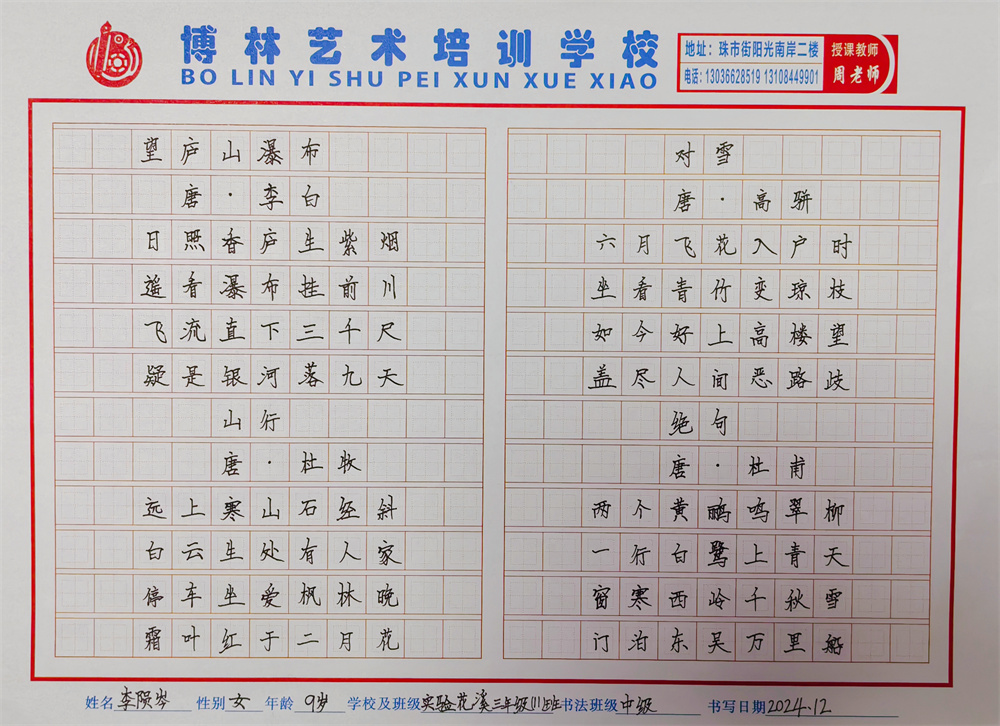 博林艺术培训学校
BO LIN YI SHU PEI XUN XUE XIAO
地址：珠市街阳光南岸二楼
电话：13036628519 13108449901
授课教师
周老师
望庐山瀑布
唐·李白
日照香庐生紫烟
遥看瀑布挂前川
飞流直下三千尺
疑是银河落九天
山行
唐·杜牧
远上寒山石经斜
白云生处有人家
停车坐爱枫林晚
霜叶红于二月花
对雪
唐·高骈
六月飞花入户时
坐看青竹变琼枝
如今好上高楼望
盖尽人间恶路歧
绝句
唐·杜甫
两个黄鹂鸣翠柳
一行白鹭上青天
窗寒西岭千秋雪
门泊东吴万里船
姓名 李陨岑 性别 女 年龄 9岁 学校及班级 实验花溪三年级(11)班 书法班级 中级 书写日期 2024.12